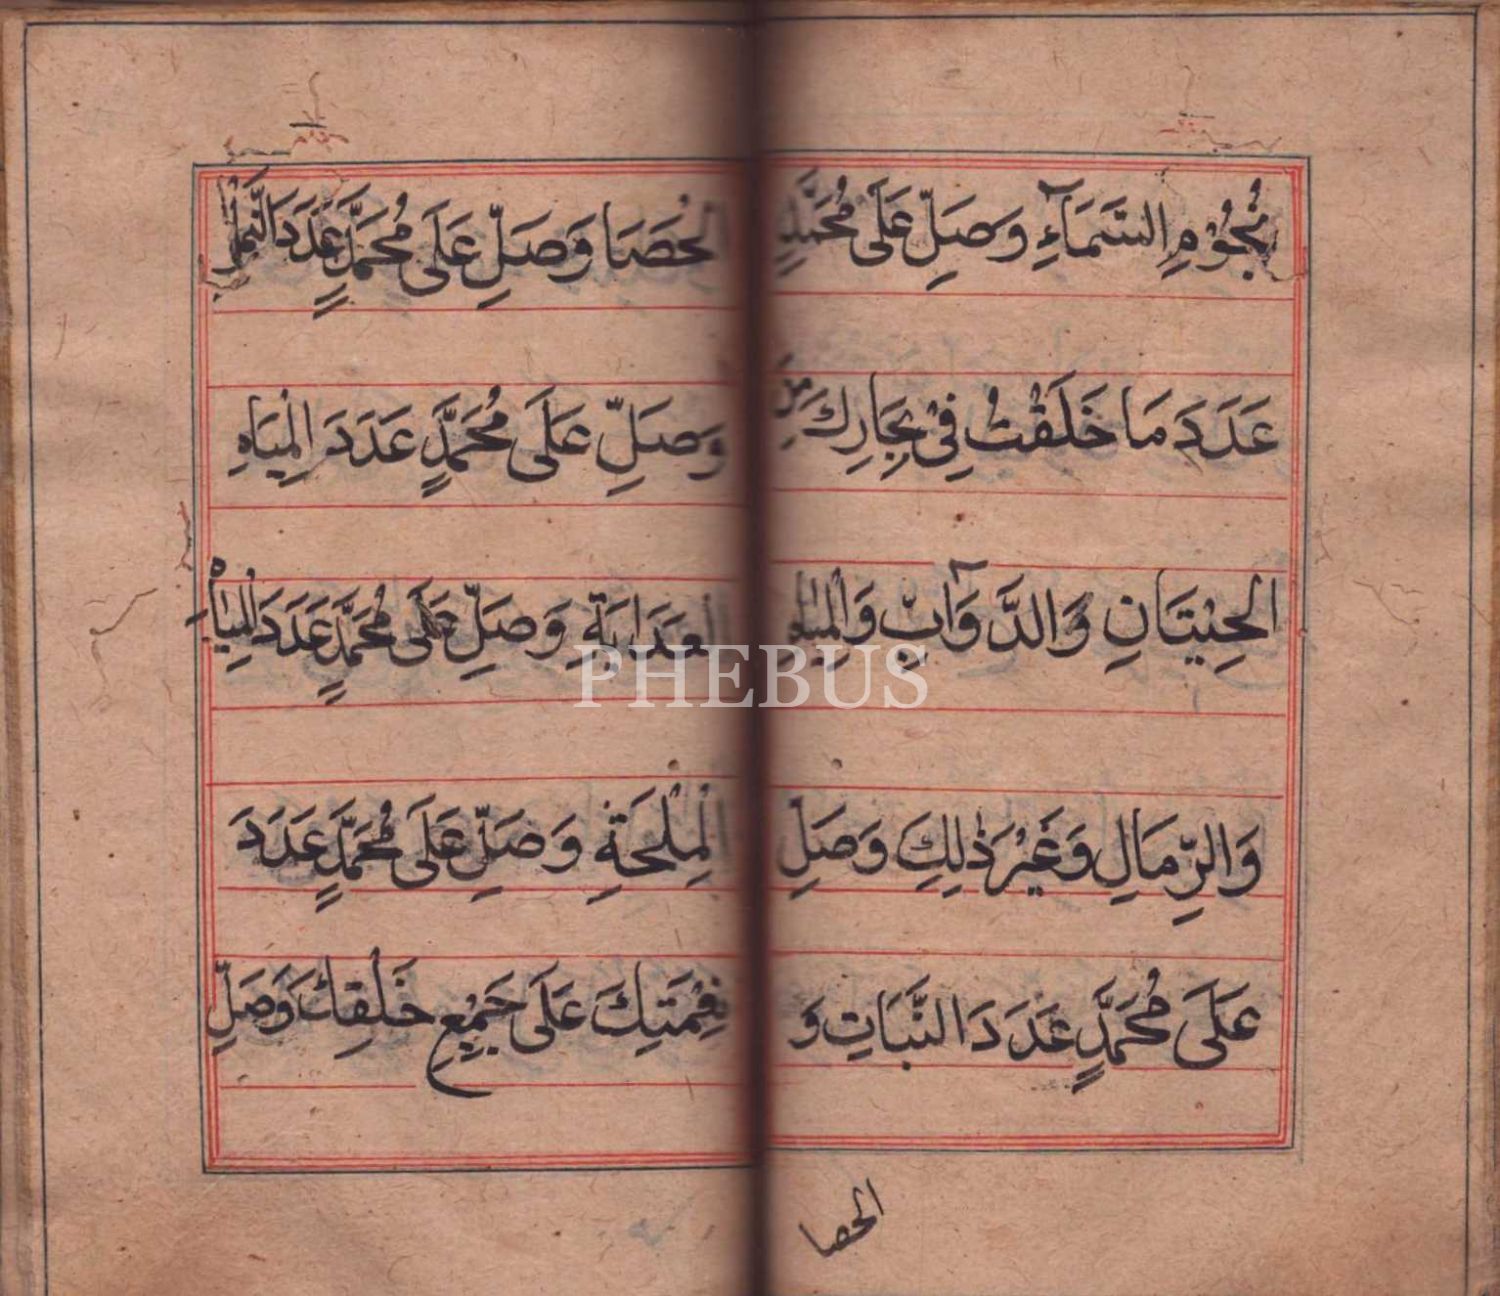 نُجُوْمِ السَّمَآءِ وَصَلِّ عَلَى مُحَمَّدٍ
عَدَدَ مَا خَلَقْتَ فِيْ بِحَارِكَ مِنَ
الْحِيْتَانِ وَالدَّوَآبِّ وَالْمِيَاهِ
وَالرِّمَالِ وَغَيْرَ ذٰلِكَ وَصَلِّ
عَلَى مُحَمَّدٍ عَدَدَ النَّبَاتِ وَ
الحصا
الْحَصَا وَصَلِّ عَلَى مُحَمَّدٍ عَدَدَ النَّمْلِ
وَصَلِّ عَلَى مُحَمَّدٍ عَدَدَ الْمِيَاهِ
لْعَذَابَةِ وَصَلِّ عَلَى مُحَمَّدٍ عَدَدَ الْمِيَاهِ
الْمِلْحَةِ وَصَلِّ عَلَى مُحَمَّدٍ عَدَدَ
نِعْمَتِكَ عَلَى جَمِيْعِ خَلْقِكَ وَصَلِّ
PHEBUS